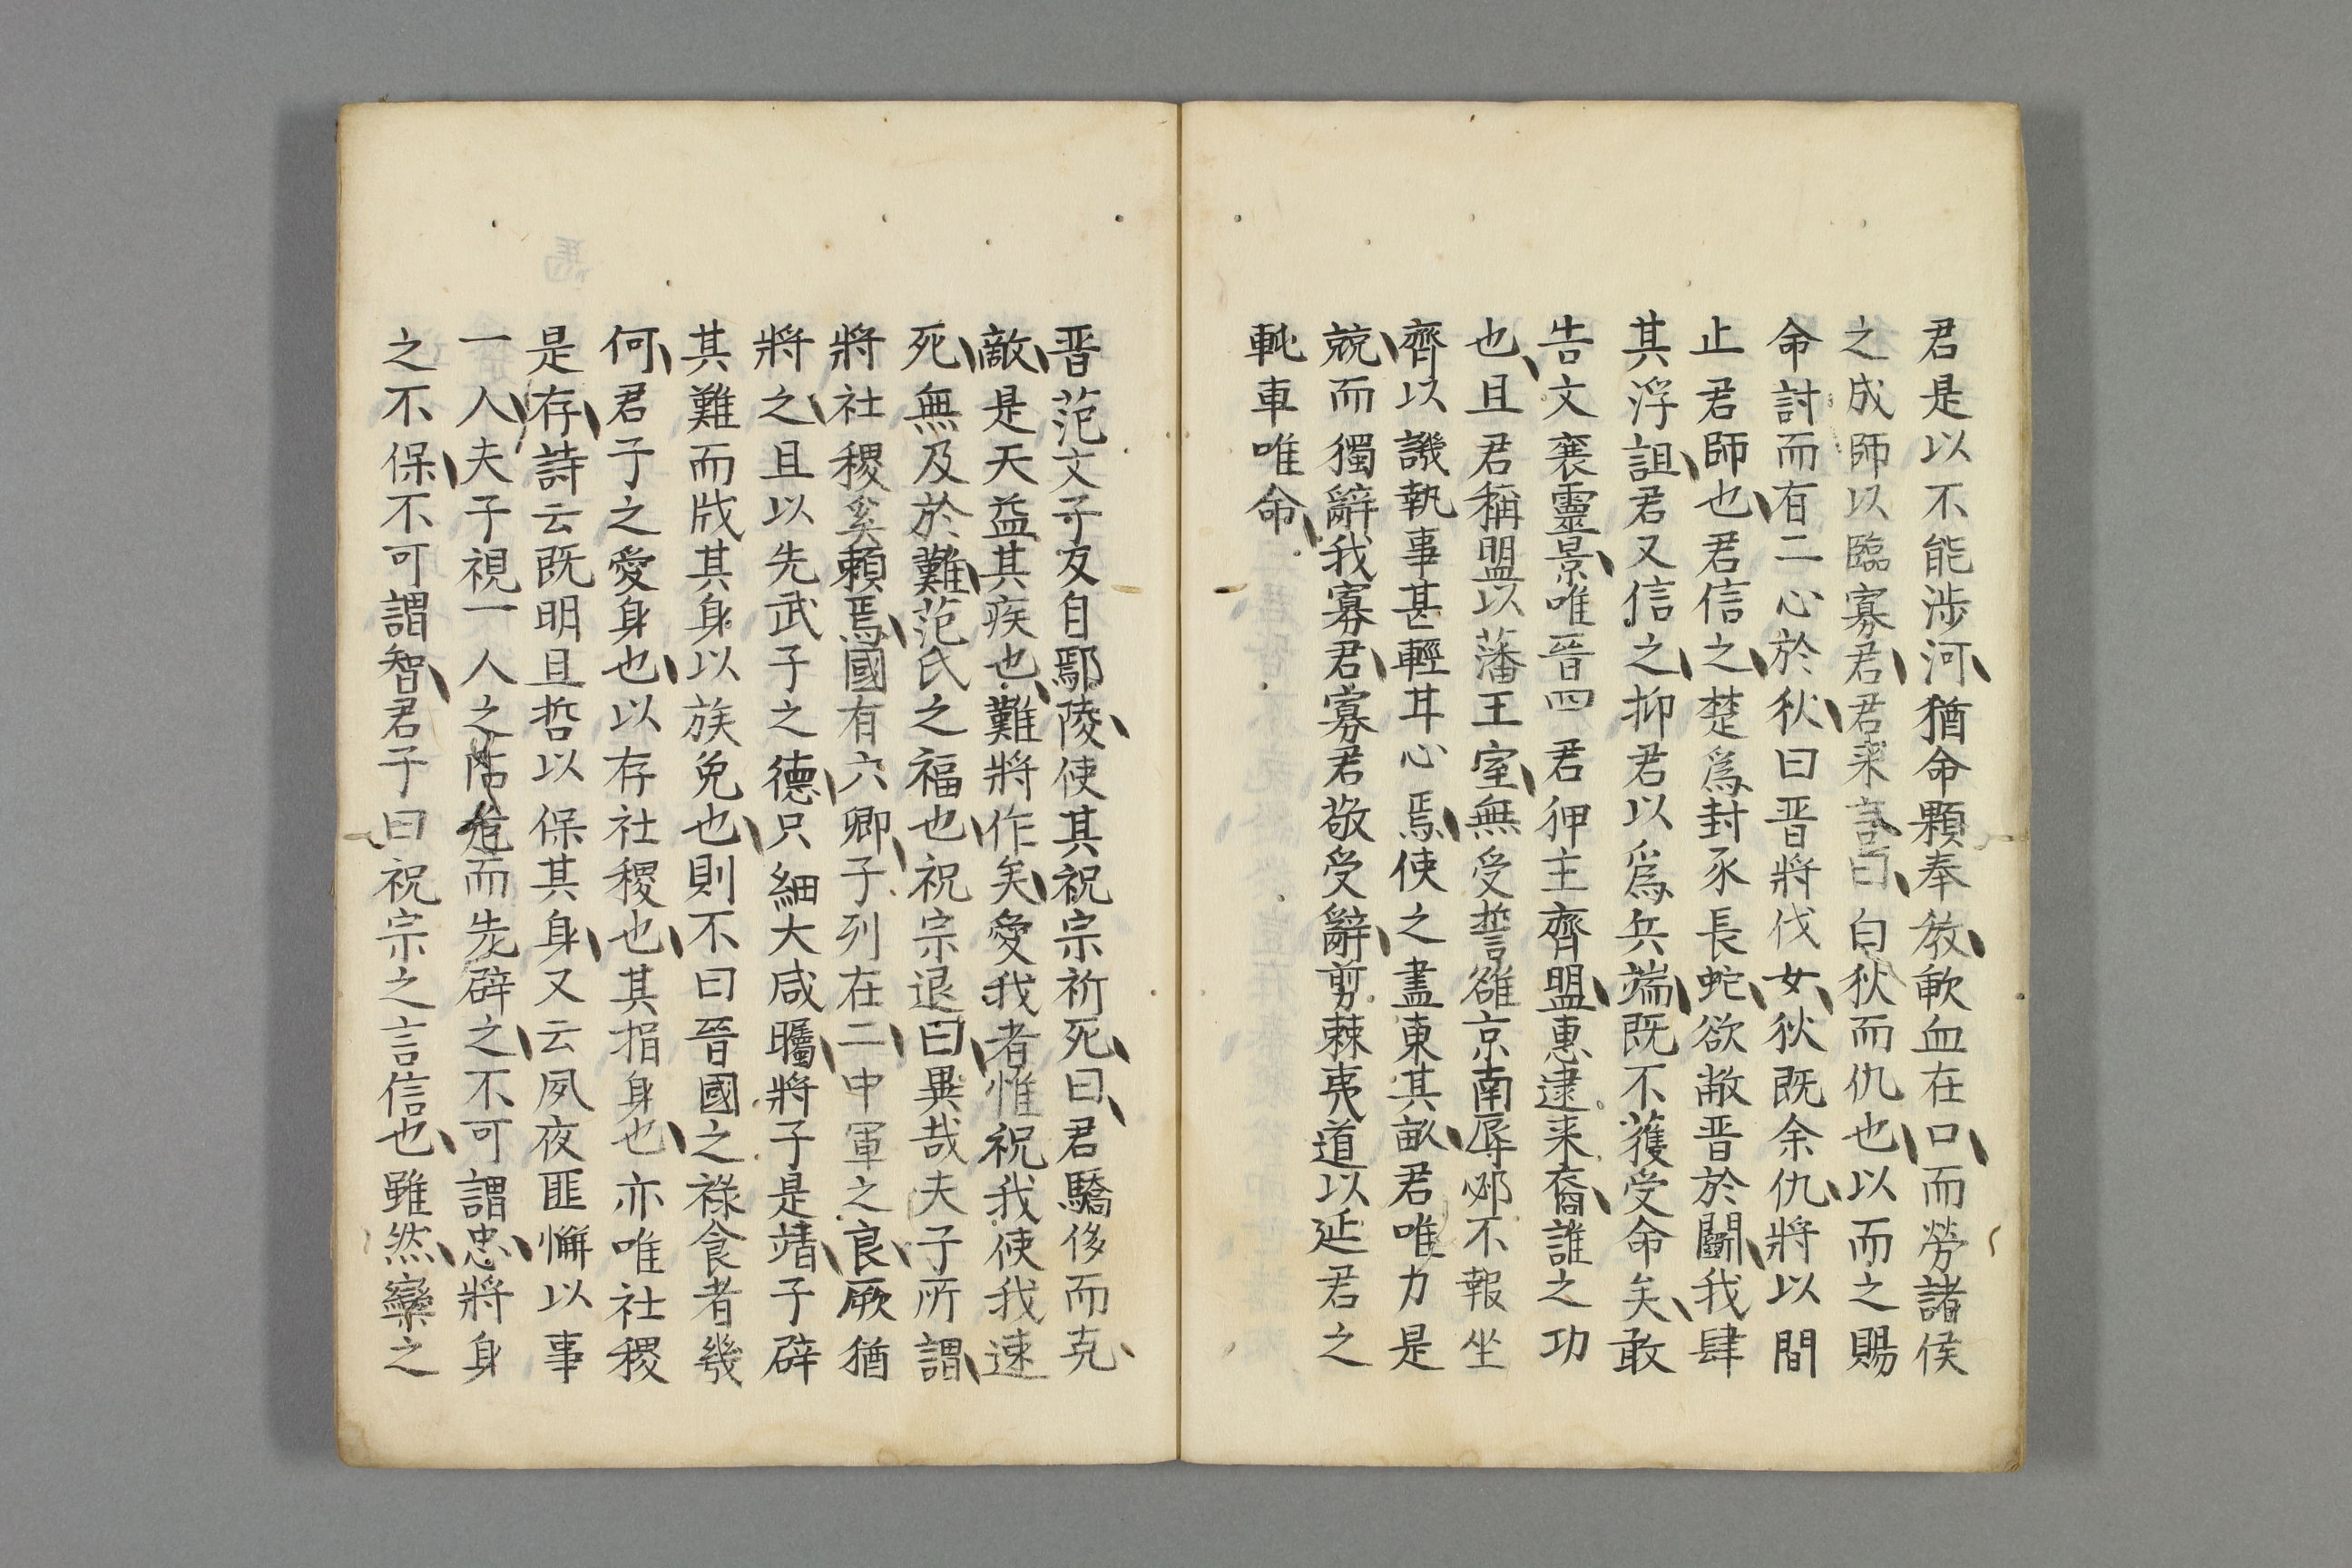 君是以不能涉河猶命顆奉教歃血在口而勞諸侯
之成師以臨寡君君來言曰白狄而仇也以而之賜
命討而有二心於狄曰晋將伐女狄既余仇將以間
止君師也君信之楚爲封豕長蛇欲敝晋於鬭我肆
其浮詛君又信之抑君以爲兵端既不獲受命矣敢
告文襄靈景唯晋四君狎主齊盟惠逮来裔誰之功
也且君稱盟以藩王室無受誓雒京南辱郊不報坐
齊以譏執事甚輕耳心焉使之盡東其畝君唯力是
兢而獨辭我寡君寡君敬受辭剪棘夷道以延君之
軘車唯命
晋范文子反自鄢陵使其祝宗祈死曰君驕侈而克
敵是天益其疾也難將作矣愛我者惟祝我使我速
死無及於難范氏之福也祝宗退曰異哉夫子所謂
將社稷奚賴焉國有六卿子列在二中軍之良厥猶
將之且以先武子之德只細大咸矚將子是靖子辟
其難而戕其身以族免也則不曰晉國之祿食者幾
何君子之愛身也以存社稷也其捐身也亦唯社稷
是存詩云既明且哲以保其身又云夙夜匪懈以事
一人夫子視一人之阽危而先辟之不可謂忠將身
之不保不可謂智君子曰祝宗之言信也雖然欒之